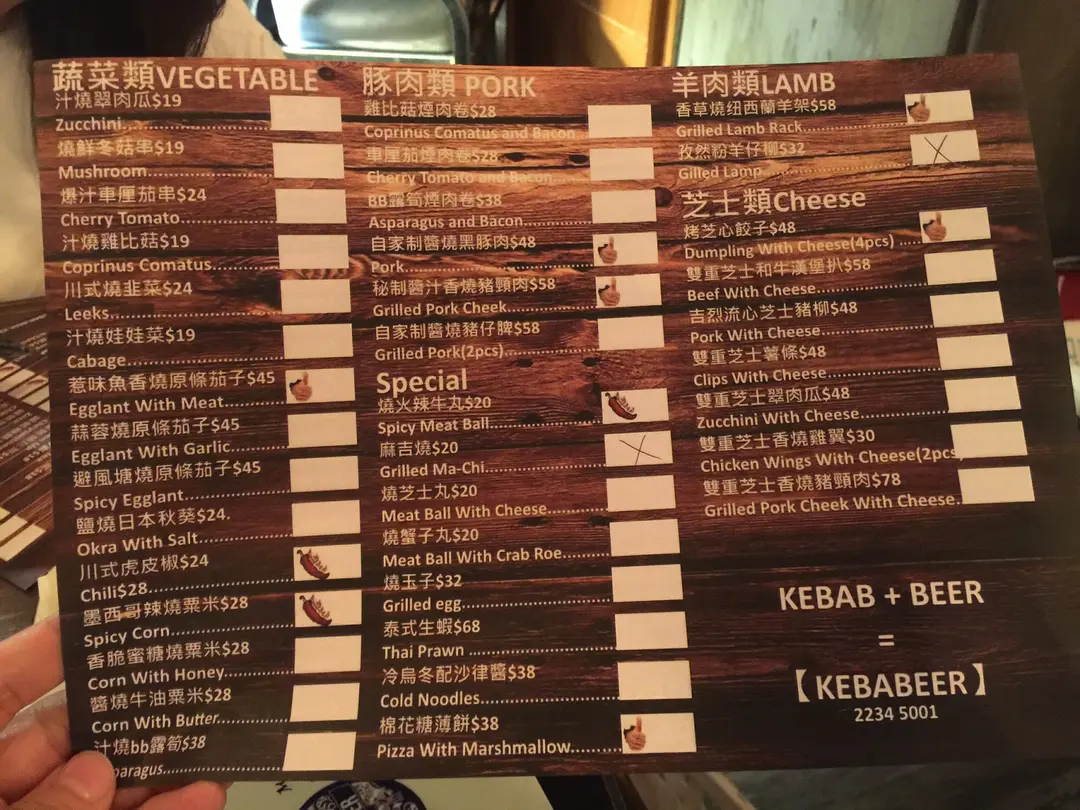 蔬菜類VEGETABLE
汁燒翠肉瓜$19
Zucchini
燒鮮冬菇串$19
Mushroom
爆汁車厘茄串$24
Cherry Tomato
汁燒雞比菇$19
Coprinus Comatus
川式燒韭菜$24
Leeks
汁燒娃娃菜$19
Cabage
惹味魚香燒原條茄子$45
Egglant With Meat
蒜蓉燒原條茄子$45
Egglant With Garlic
避風塘燒原條茄子$45
Spicy Egglant
鹽燒日本秋葵$24.
Okra With Salt
川式虎皮椒$24
Chili$28
墨西哥辣燒粟米$28
Spicy Corn
香脆蜜糖燒粟米$28
Corn With Honey
醬燒牛油粟米$28
Corn With Butter
汁燒bb露筍$38
paragus
豚肉類 PORK
雞比菇煙肉卷$28
Coprinus Comatus and Bacon
車厘茄煙肉卷$28
Cherry Tomato and Bacon
BB露筍煙肉卷$38
Asparagus and Bacon
自家制醬燒黑豚肉$48
Pork
秘制醬汁香燒豬頸肉$58
Grilled Pork Cheek
自家制醬燒豬仔脾$58
Grilled Pork(2pcs)
Special
燒火辣牛丸$20
Spicy Meat Ball
麻吉燒$20
Grilled Ma-Chi
燒芝士丸$20
Meat Ball With Cheese
燒蟹子丸$20
Meat Ball With Crab Roe
燒玉子$32
Grilled egg
泰式生蝦$68
Thai Prawn
冷烏冬配沙律醬$38
Cold Noodles
棉花糖薄餅$38
Pizza With Marshmallow
羊肉類LAMB
香草燒纽西蘭羊架$58
Grilled Lamb Rack
孜然粉羊仔柳$32
Gilled Lamp
芝士類Cheese
烤芝心餃子$48
Dumpling With Cheese(4pcs)
雙重芝士和牛漢堡扒$58
Beef With Cheese
吉烈流心芝士豬柳$48
Pork With Cheese
雙重芝士薯條$48
Clips With Cheese
雙重芝士翠肉瓜$48
Zucchini With Cheese
雙重芝士香燒雞翼$30
Chicken Wings With Cheese(2pcs
雙重芝士香燒豬頸肉$78
Grilled Pork Cheek With Cheese
KEBAB + BEER
=
【KEBABEER】
2234 5001